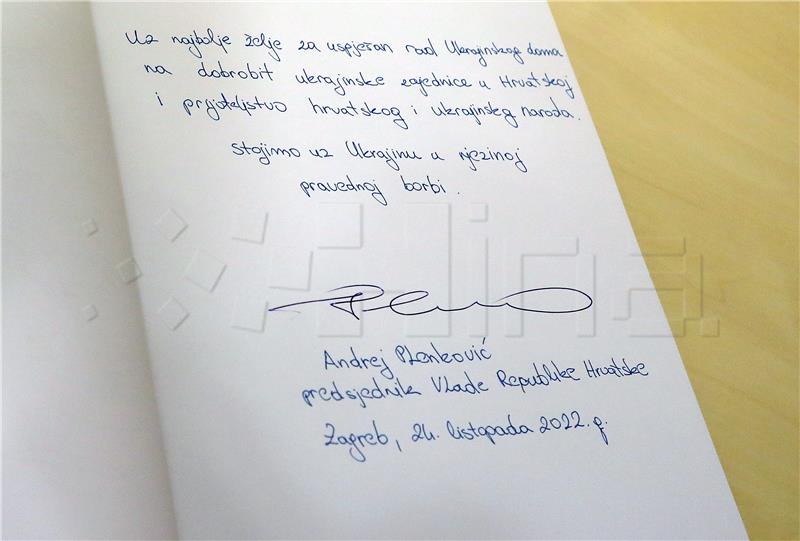 Uz najbolje želje za uspješan rad Ukrajinskog doma
na dobrobit ukrajinske zajednice u Hrvatskoj
i prijateljstvo hrvatskog i ukrajinskog naroda.
Stojimo uz Ukrajinu u njezinoj
pravednoj borbi.
Andrej Plenković
predsjednik Vlade Republike Hrvatske
Zagreb, 24. listopada 2022. g.
Hina